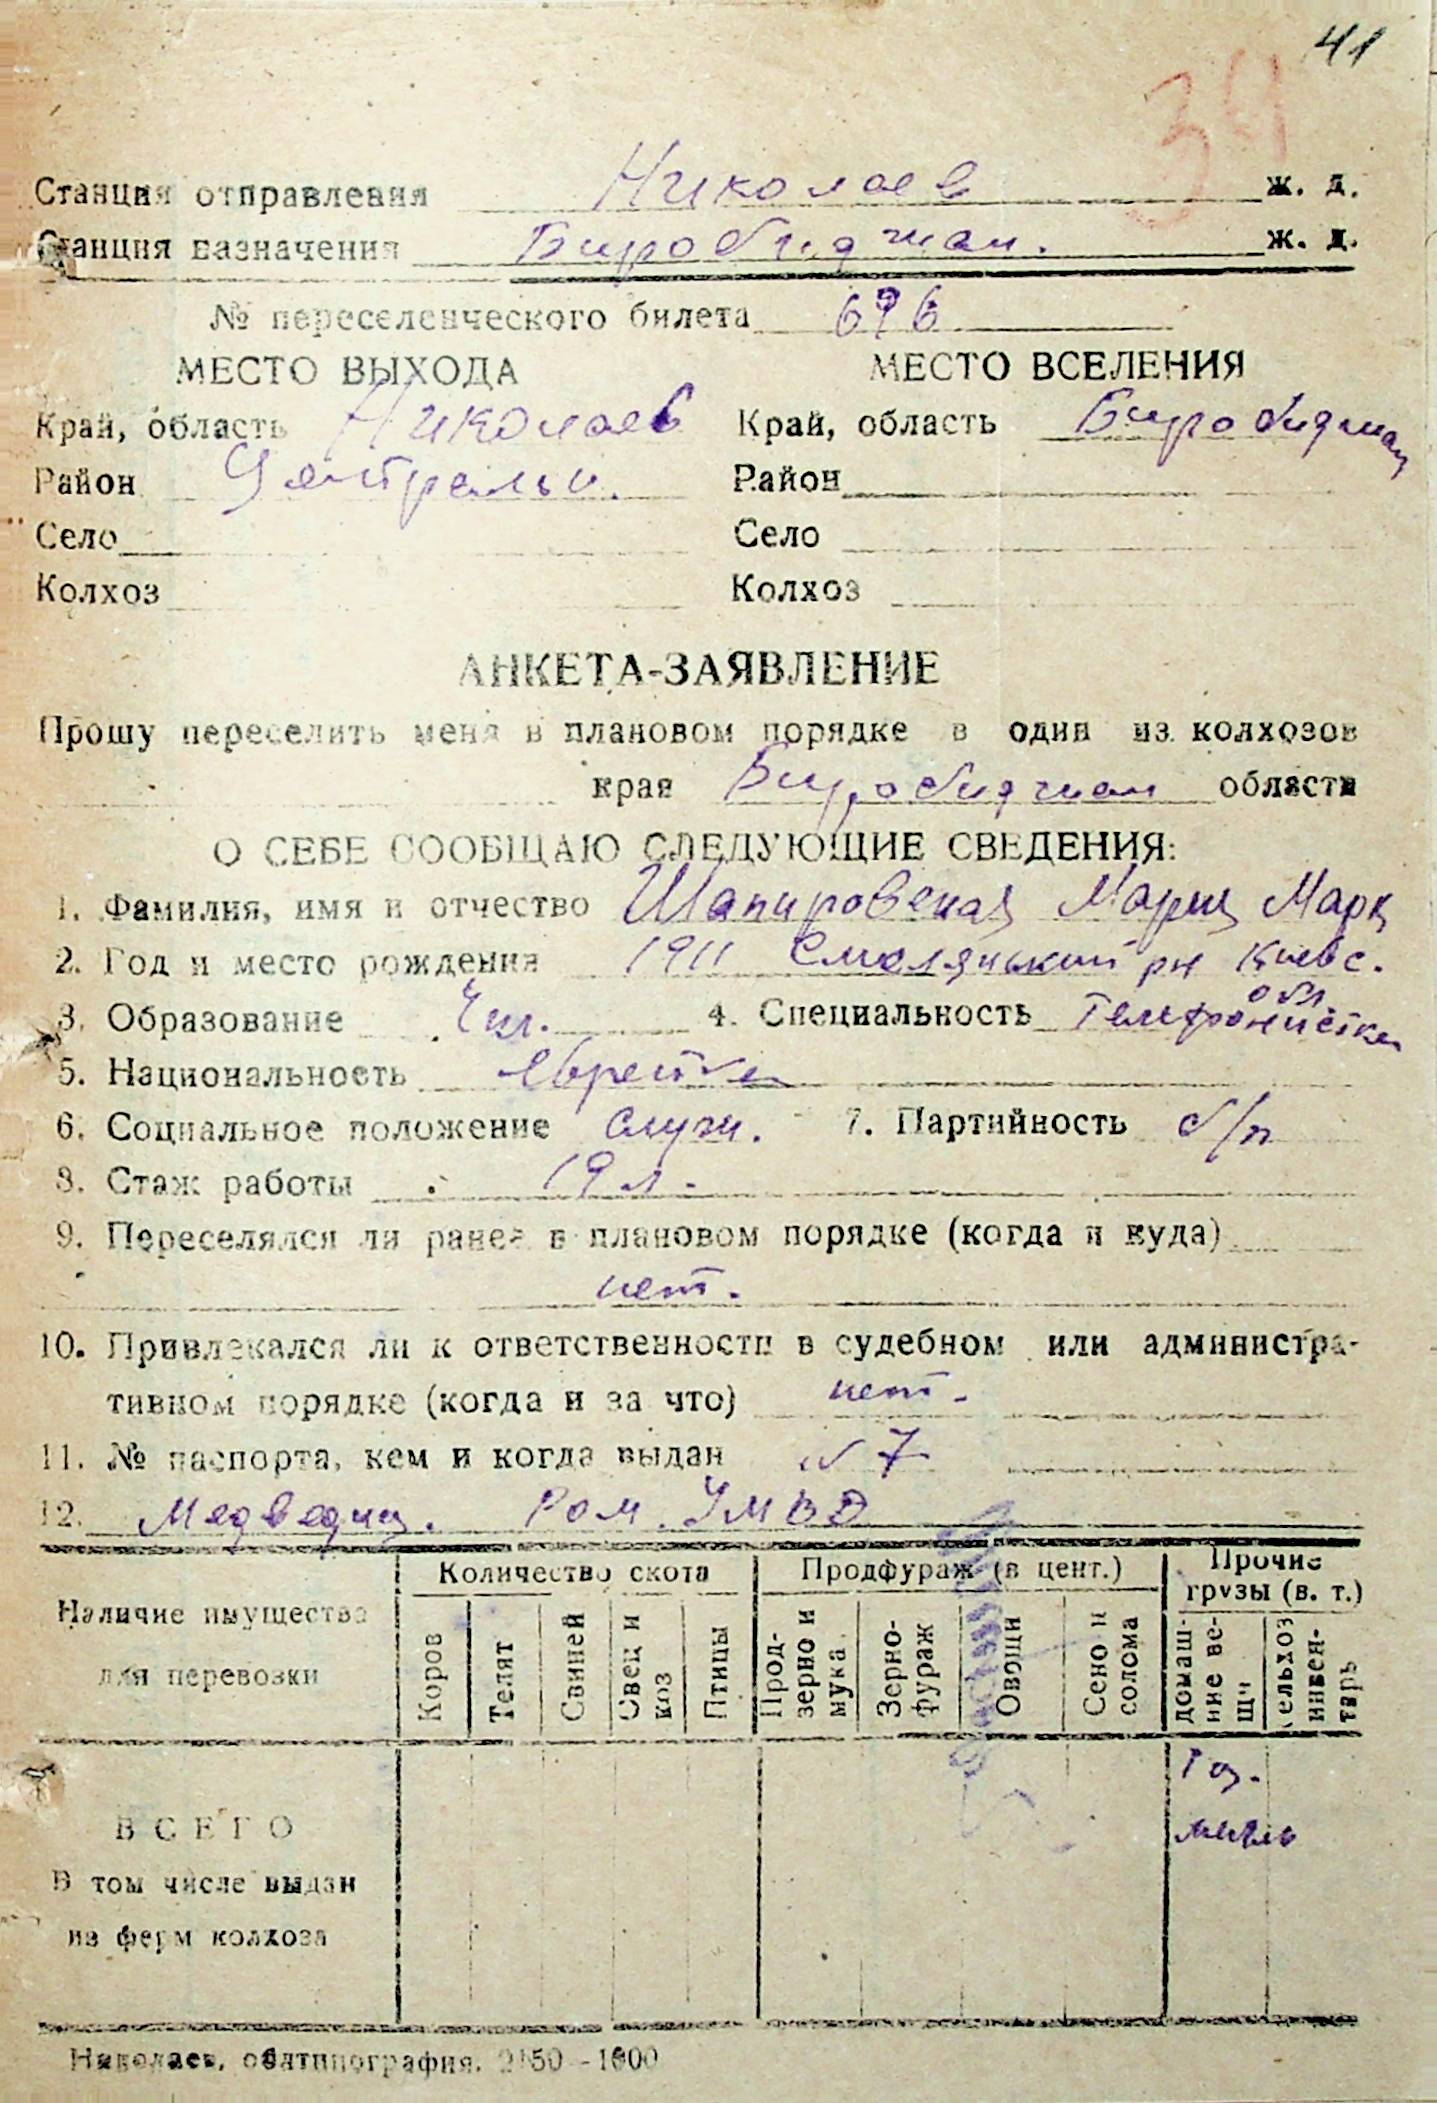 41
34
Станция отправления Николаев ж. д.
Станция назначения Биробиджан. ж. д.
№ переселенческого билета 696
МЕСТО ВЫХОДА МЕСТО ВСЕЛЕНИЯ
Край, область Николаев Край, область Биробиджан
Район Центральн. Район
Село Село
Колхоз Колхоз
АНКЕТА-ЗАЯВЛЕНИЕ
Прошу переселить меня в плановом порядке в один из колхозов
края Биробиджан области
О СЕБЕ СООБЩАЮ СЛЕДУЮЩИЕ СВЕДЕНИЯ:
1. Фамилия, имя и отчество Шапировская Мария Марк
2. Год и место рождения 1911 Смолянский рн Киевс.
обл.
3. Образование 4 кл. 4. Специальность Телефонистка
5. Национальность еврейка
6. Социальное положение служ. 7. Партийность б/п
8. Стаж работы 19 л.
9. Переселялся ли ранее в плановом порядке (когда и куда)
нет.
10. Привлекался ли к ответственности в судебном или администра-
тивном порядке (когда и за что) нет.
11. № паспорта, кем и когда выдан № 7
12. УМВД
Количество скота Продфураж (в цент.) Прочие грузы (в. т.)
Наличие имущества для перевозки
Коров Телят Свиней Овец и коз Птицы Прод-зерно и мука Зерно-фураж Овощи Сено и солома домаш-ние ве-щи сельхоз инвен-тарь
ВСЕГО
В том числе выдан
из ферм колхоза
Николаев, облтипография. 2150 - 1000